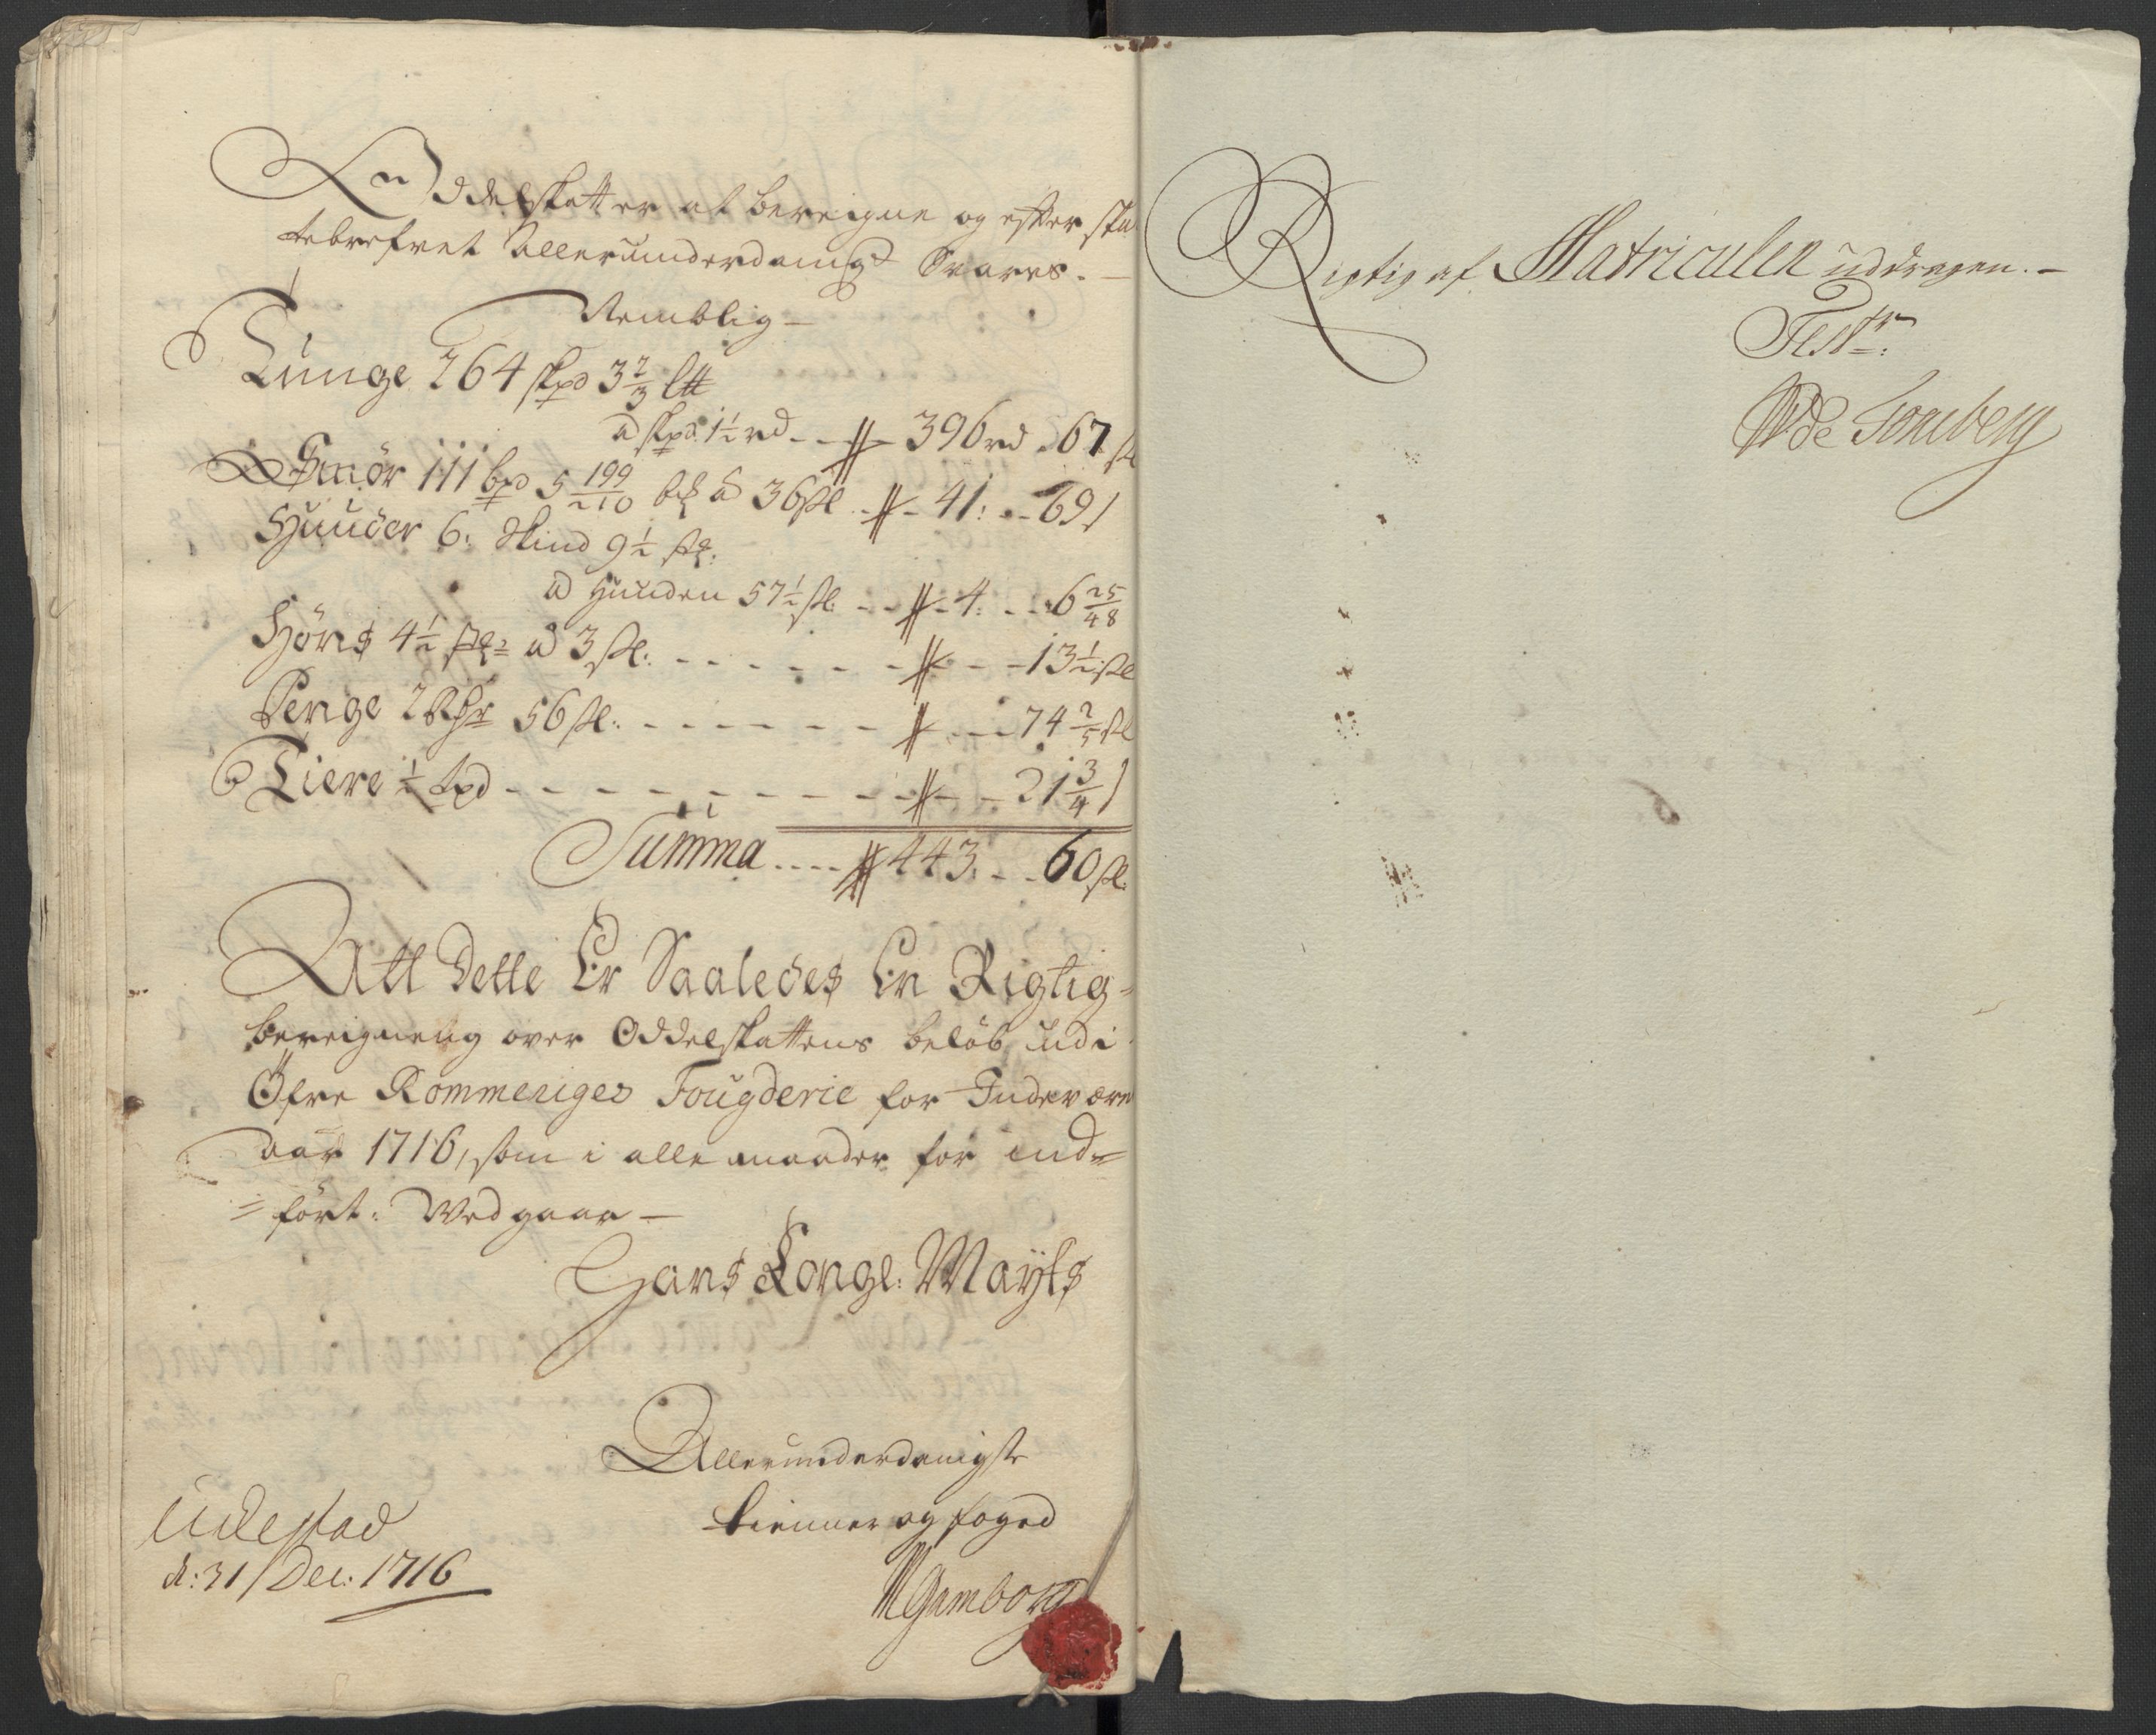 En Oddelskatt er at bereigne og efter ska
tebrefvet Allerunderdanigst Svares. –
Nemblig –
Tunge 264 skpd 3 2/3 l℔
a skpd. 1 1/2 rd - - # 396 rd . 67 sl
Smör 111 bpd 5 199/210 bsk a 36 sl - # - 41: - - 69 s
Huuder 6: Skind 9 1/2 stk:
a Huuden 57 1/2 sl: - - # - 4: - - 6 25/48
Höns 4 1/2 stk: a 3 sl: - - - - - - - # - - 13 1/2 sl
Penge 2 Rdr 56 sl: - - - - - - - # - - - 74 2/5 sl
Tiere 1/2 tpd - - - - - - - - - - # - - 21 3/4 s
Summa .... # 443: - - 60 sl:
Att Dette Er Saaledes En Rigtig-
bereigning over Oddelskattens beløb udi
Öfre Rommeriges Fougderie for Indevære
aar 1716, som i alle maader for ind=
= fört: Wedgaar –
Hans Kongl: Mayts
Allerunderdanigste
tienner og foged
Udestad
d: 31 Dec: 1716
Gamborg
Rigtig af Matriculen uddragen. –
Test: